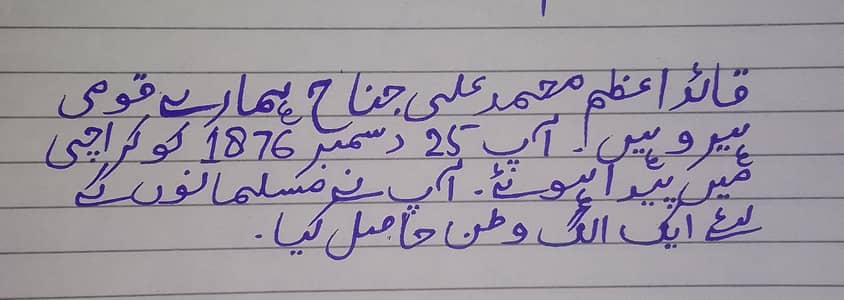 قائد اعظم محمد علی جناح ہمارے قومی
ہیرو ہیں۔ آپ 25 دسمبر 1876 کو کراچی
میں پیدا ہوئے۔ آپ نے مسلمانوں کے
لئے ایک الگ وطن حاصل کیا۔